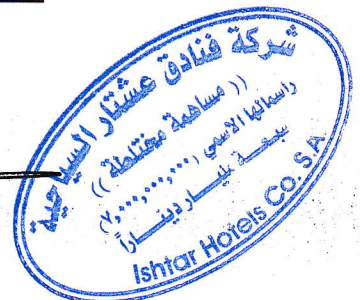 شركة فنادق عشتار السياحية
(( مساهمة مختلطة ))
راسمالها الاسمي (٧,٠٠٠,٠٠٠,٠٠٠)
سبعة مليار ديناراً
Ishtar Hotels Co. S.A.